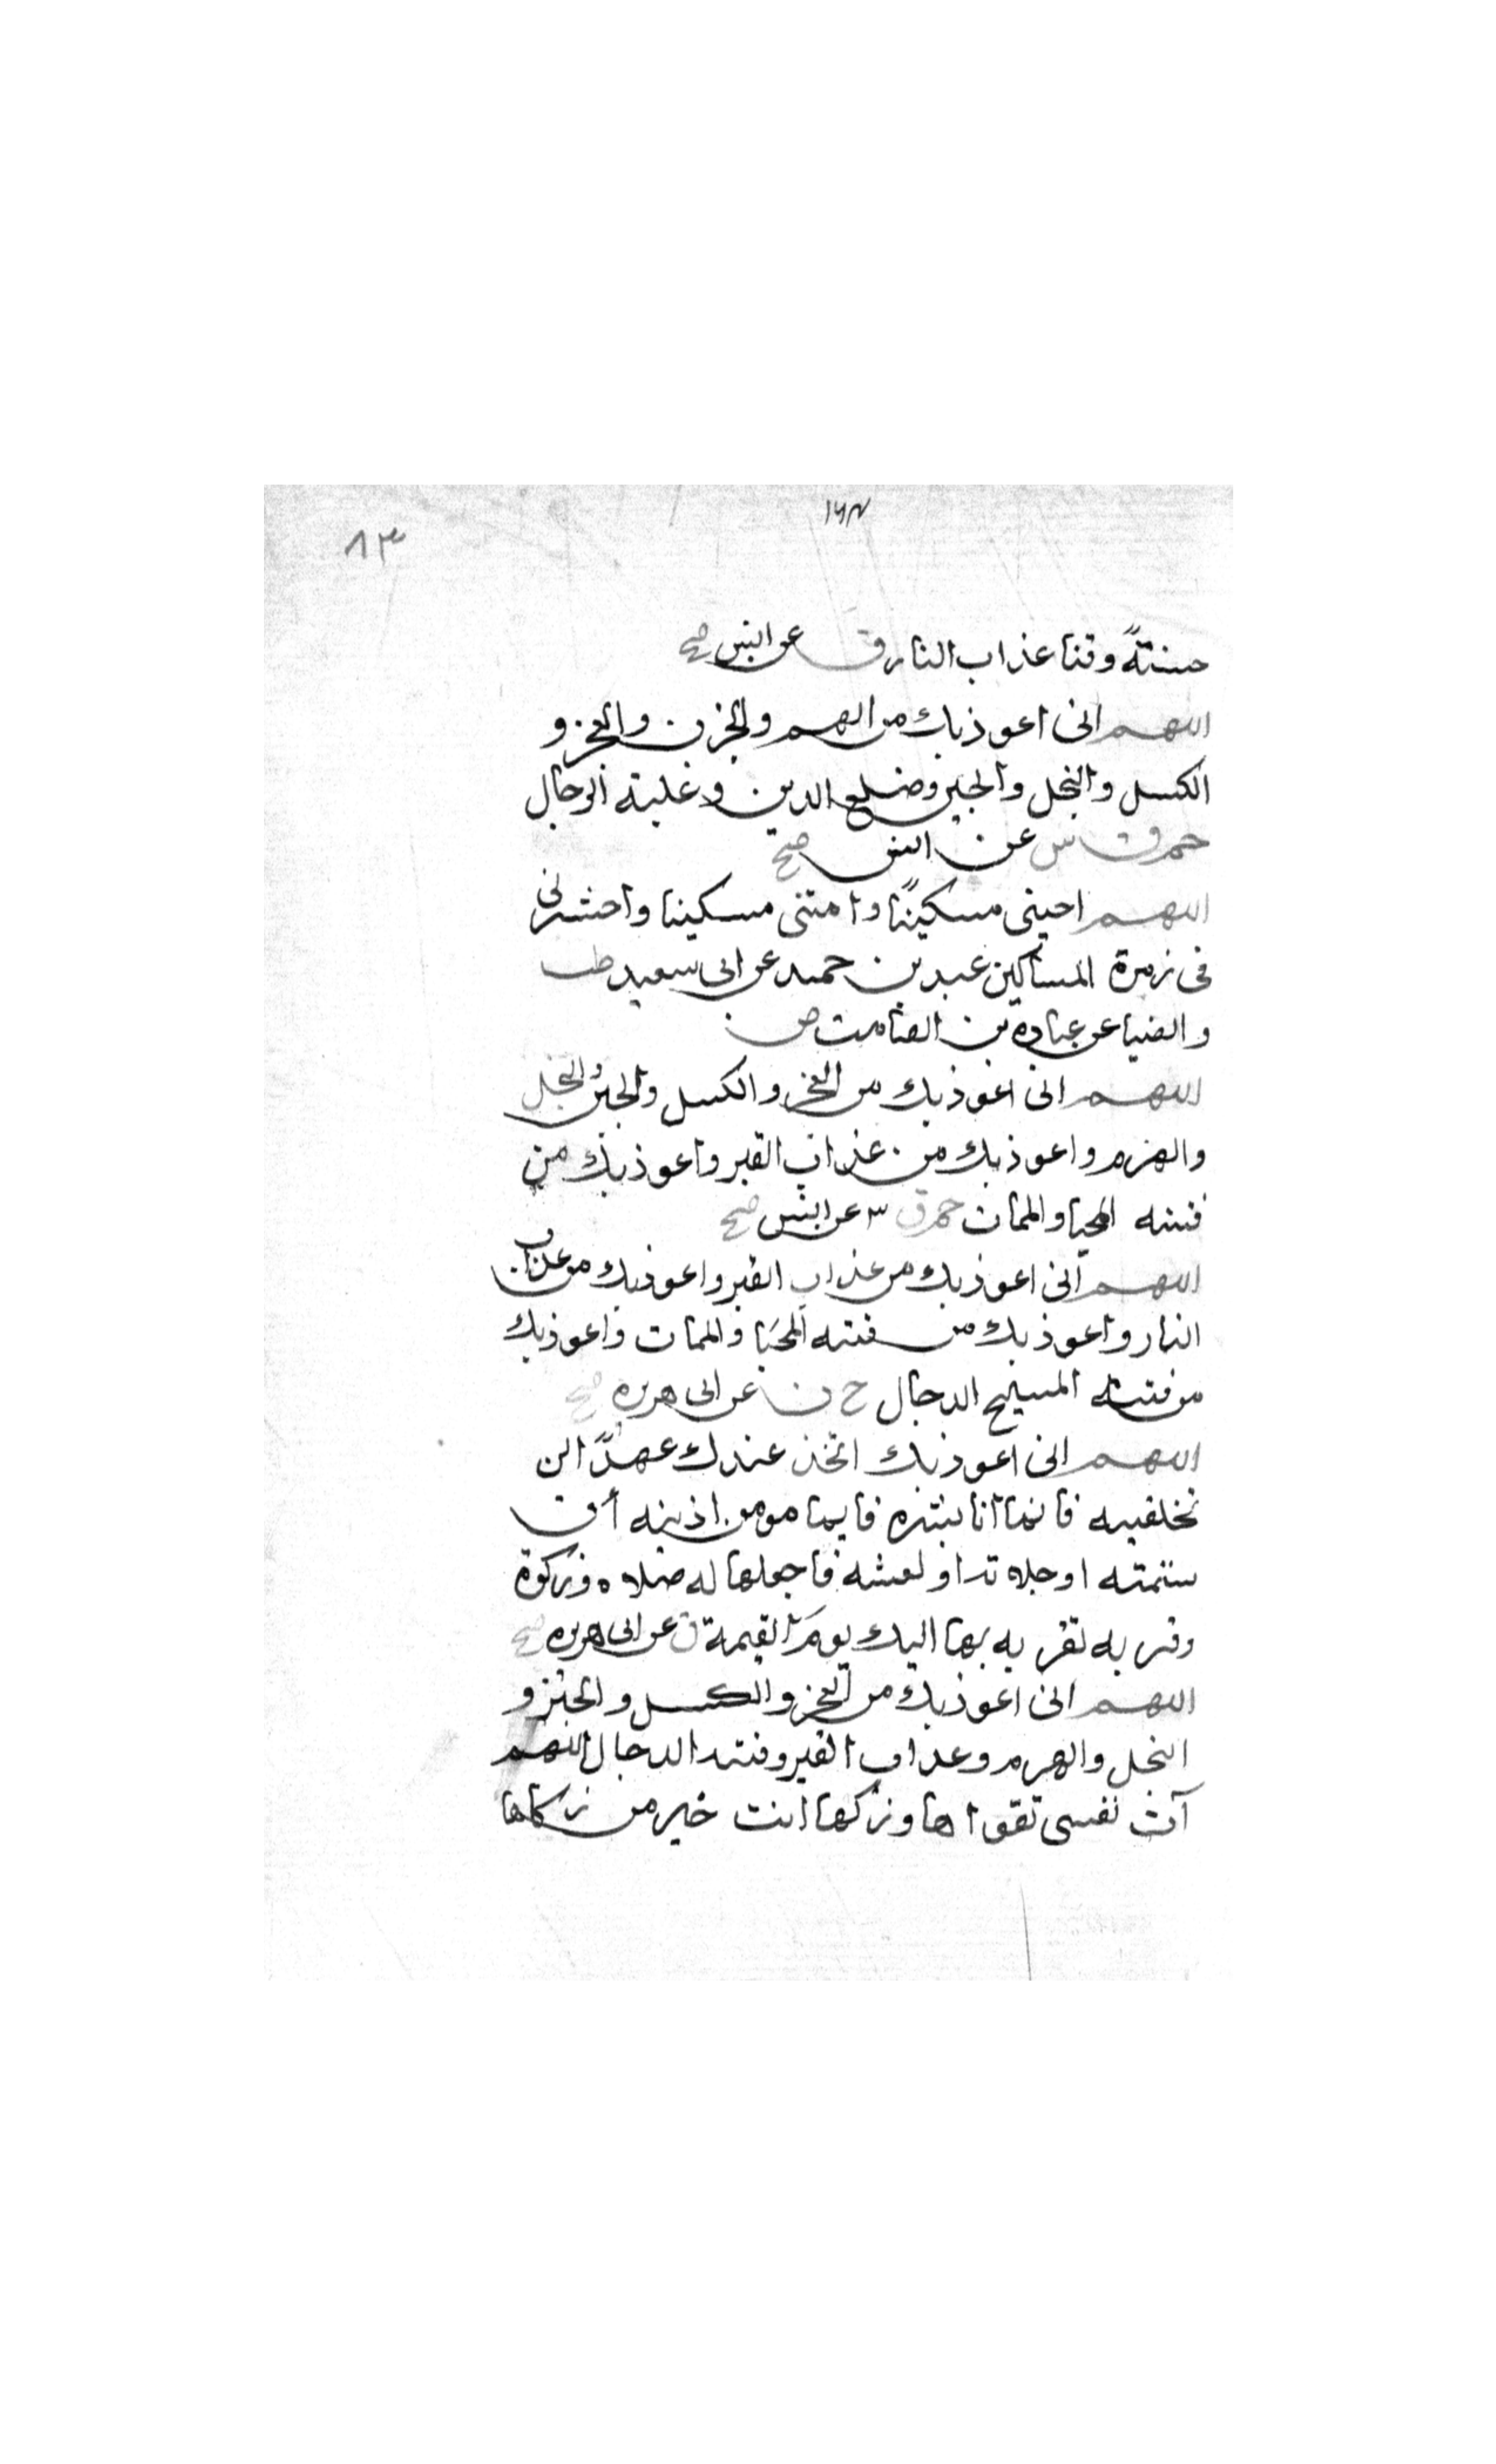 ١٦٣
٨٣
حسنةً وقنا عذاب النار ق عن انس صح
اللهم انى اعوذ بك من الهم والحزن والعجز و
الكسل والبخل والجبن وضلع الدين وغلبة الرجال
حم ق ن عن انس صح
اللهم احينى مسكينًا وامتنى مسكينا واحشرنى
فى زمرة المساكين عبد بن حميد عن ابى سعيد طب
والضيا عن عبادة بن الصامت ض
اللهم انى اعوذ بك من العجز والكسل والجبن والبخل
والهرم واعوذ بك من عذاب القبر واعوذ بك من
فتنه المحيا والممات حم ق ٣ عن انس صح
اللهم انى اعوذ بك من عذاب القبر واعوذ بك من عذاب
النار واعوذ بك من فتنه المحيَا والممات واعوذ بك
من فتنه المسيح الدجال خ ن عن ابى هريره صح
اللهم انى اعوذ بك اتخذ عندك عهدًا لن
تخلفيه فانما انا بشر فايما مومن اذيته أو
شتمته او جلدته او لعنته فاجعلها له صلاه وزكوة
وقربه تقربه بها اليك يومَ القيمة ق عن ابى هريره صح
اللهم انى اعوذ بك من العجز والكسل والجبن و
البخل والهرم وعذاب القبر وفتنه الدجال اللهم
آت نفسى تقواها وزكها انت خير من زكاها